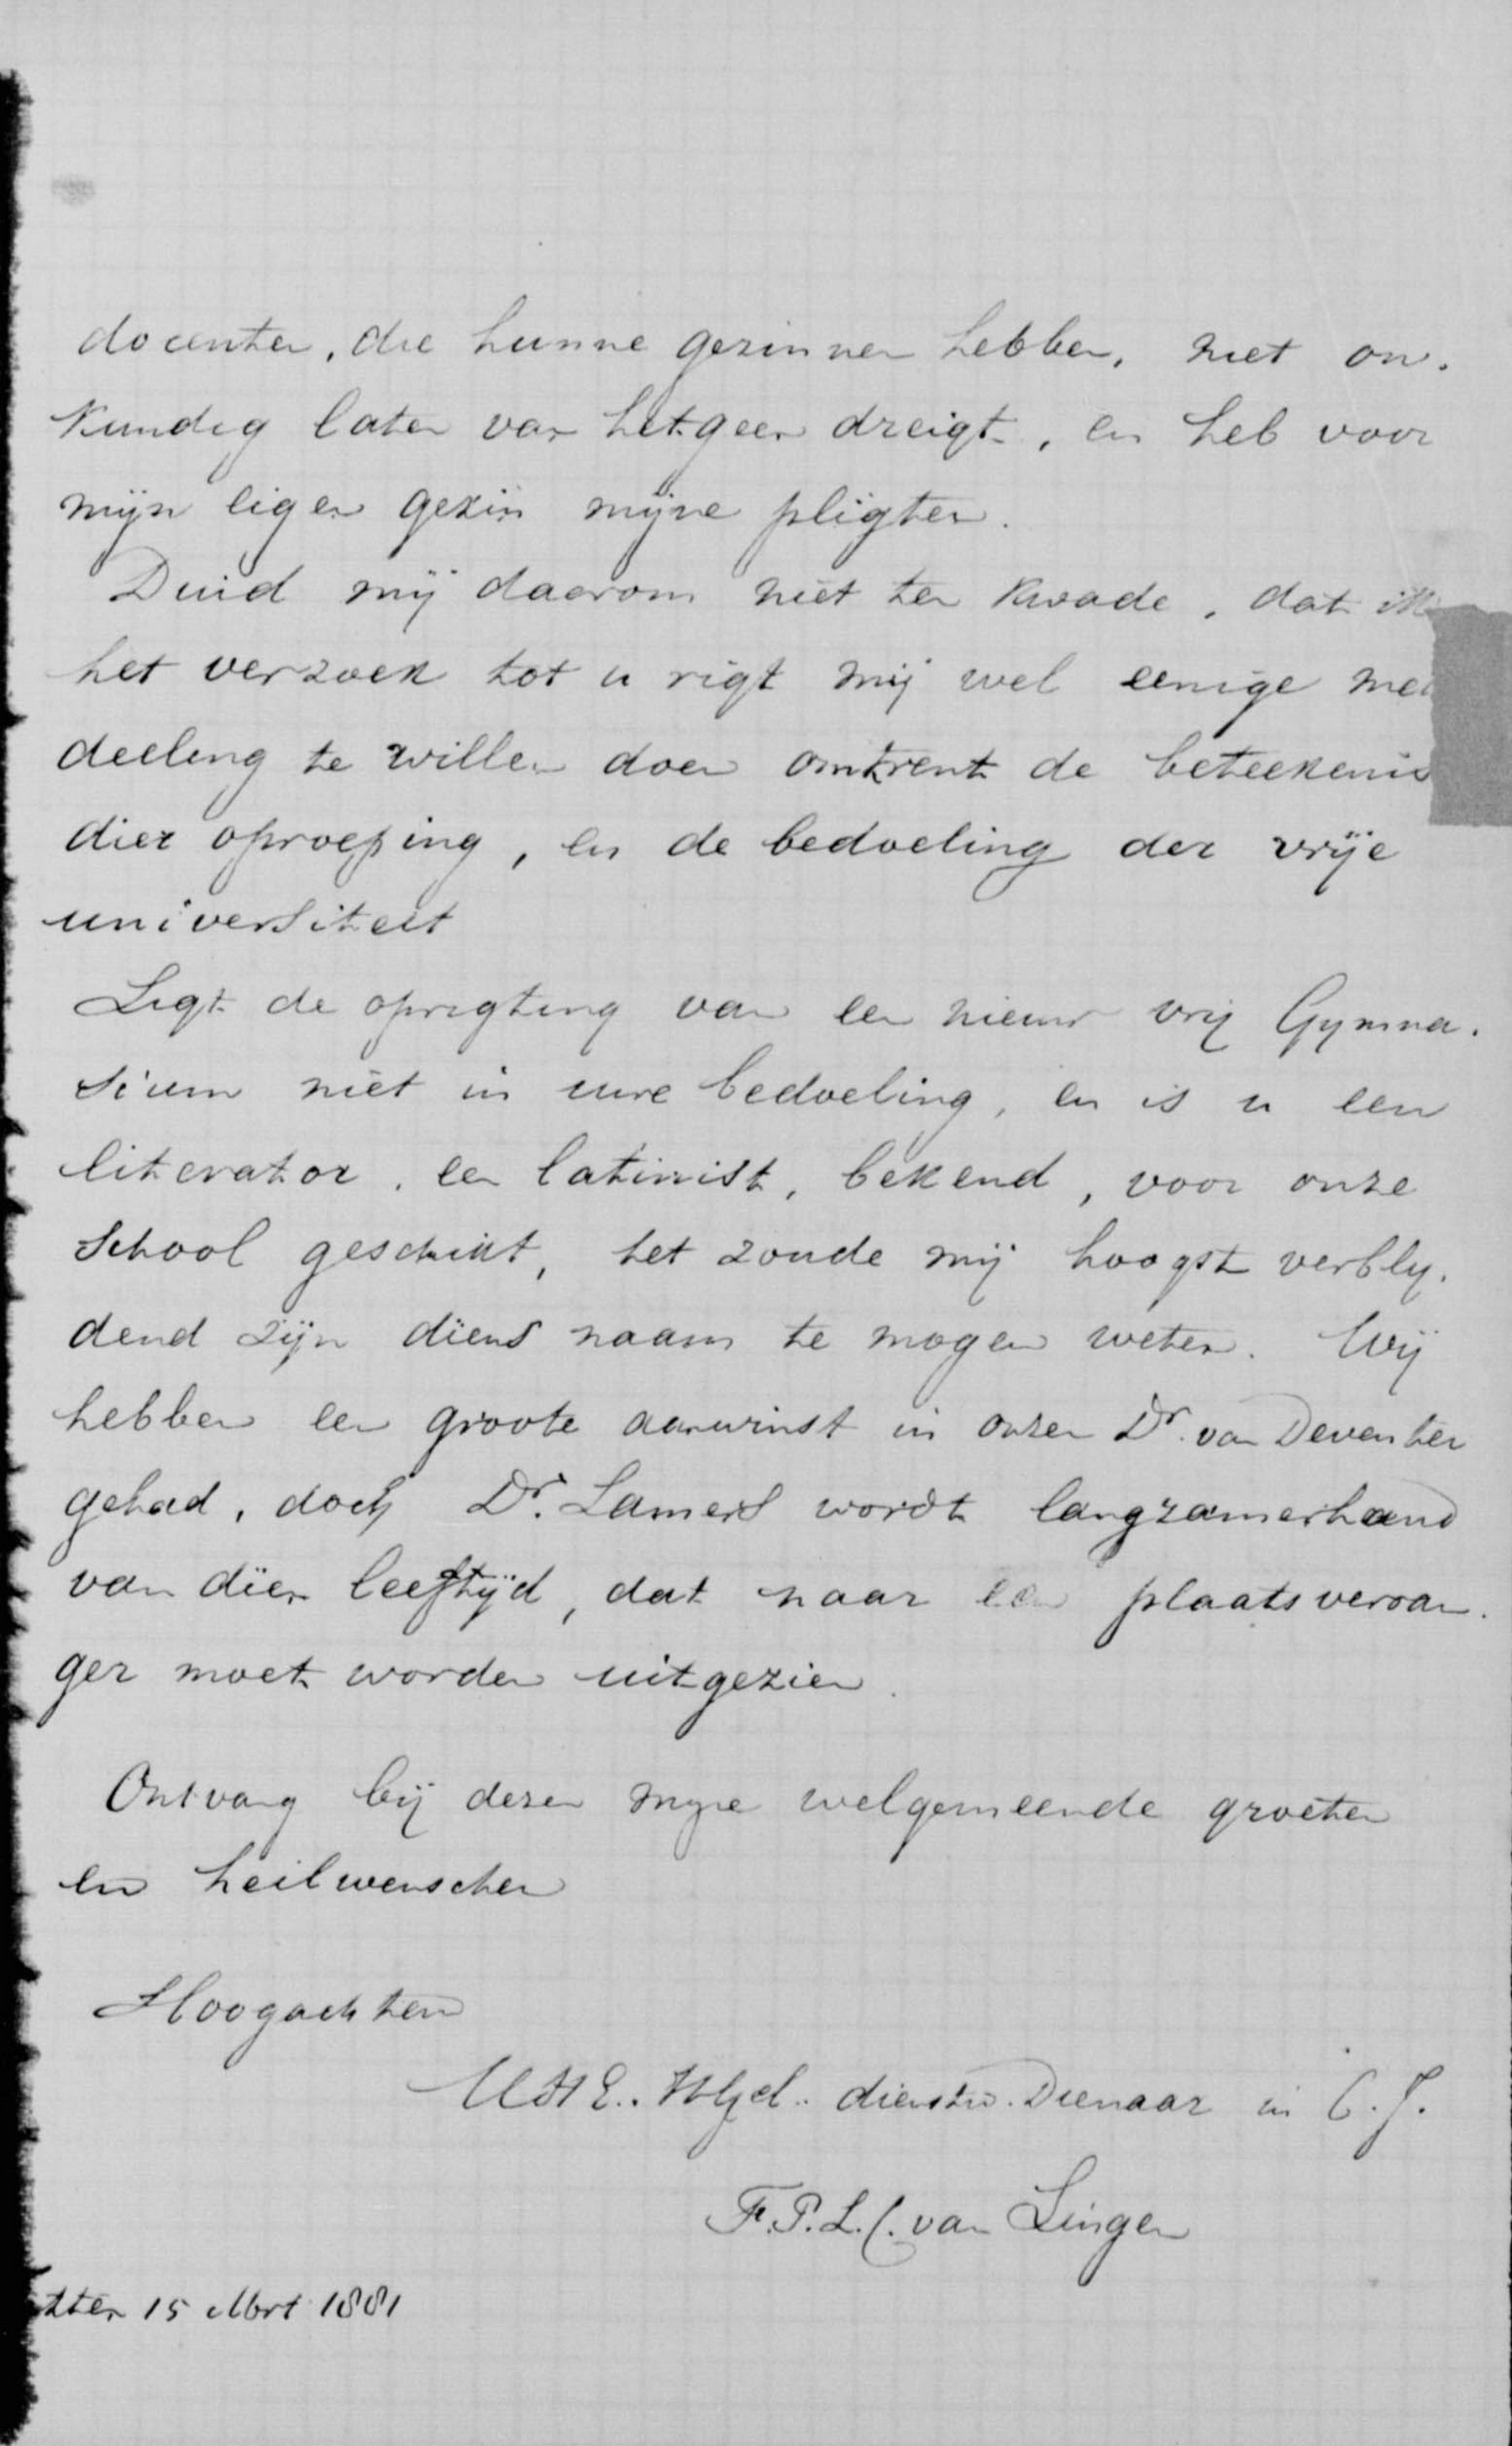 docenten, die hunne gezinnen hebben, niet on-
kundig laten van hetgeen dreigt, en heb voor
mijn eigen gezin mijne pligten.
Duid mij daarom niet ten kwade, dat ik
het verzoek tot u rigt mij wel eenige mee
deeling te willen doen omtrent de beteekenis
dier oproeping, en de bedoeling der vrije
universiteit
Ligt de oprigting van een nieuw vrij Gymna-
sium niet in uwe bedoeling, en is u een
literator, een latinist, bekend, voor onze
School geschikt, het zoude mij hoogst verblij-
dend zijn diens naam te mogen weten. Wij
hebben een groote aanwinst in onzen Dr. van Deventer
gehad, doch Dr. Lamers wordt langzamerhand
van dien leeftijd, dat naar een plaatsvervan-
ger moet worden uitgezien.
Ontvang bij dezen mijne welgemeende groeten
en heilwenschen
Hoogachten
UHE. WGel. dienstw. Dienaar in C. J.
F. P. L. C. van Lingen
tten 15 Mrt 1881